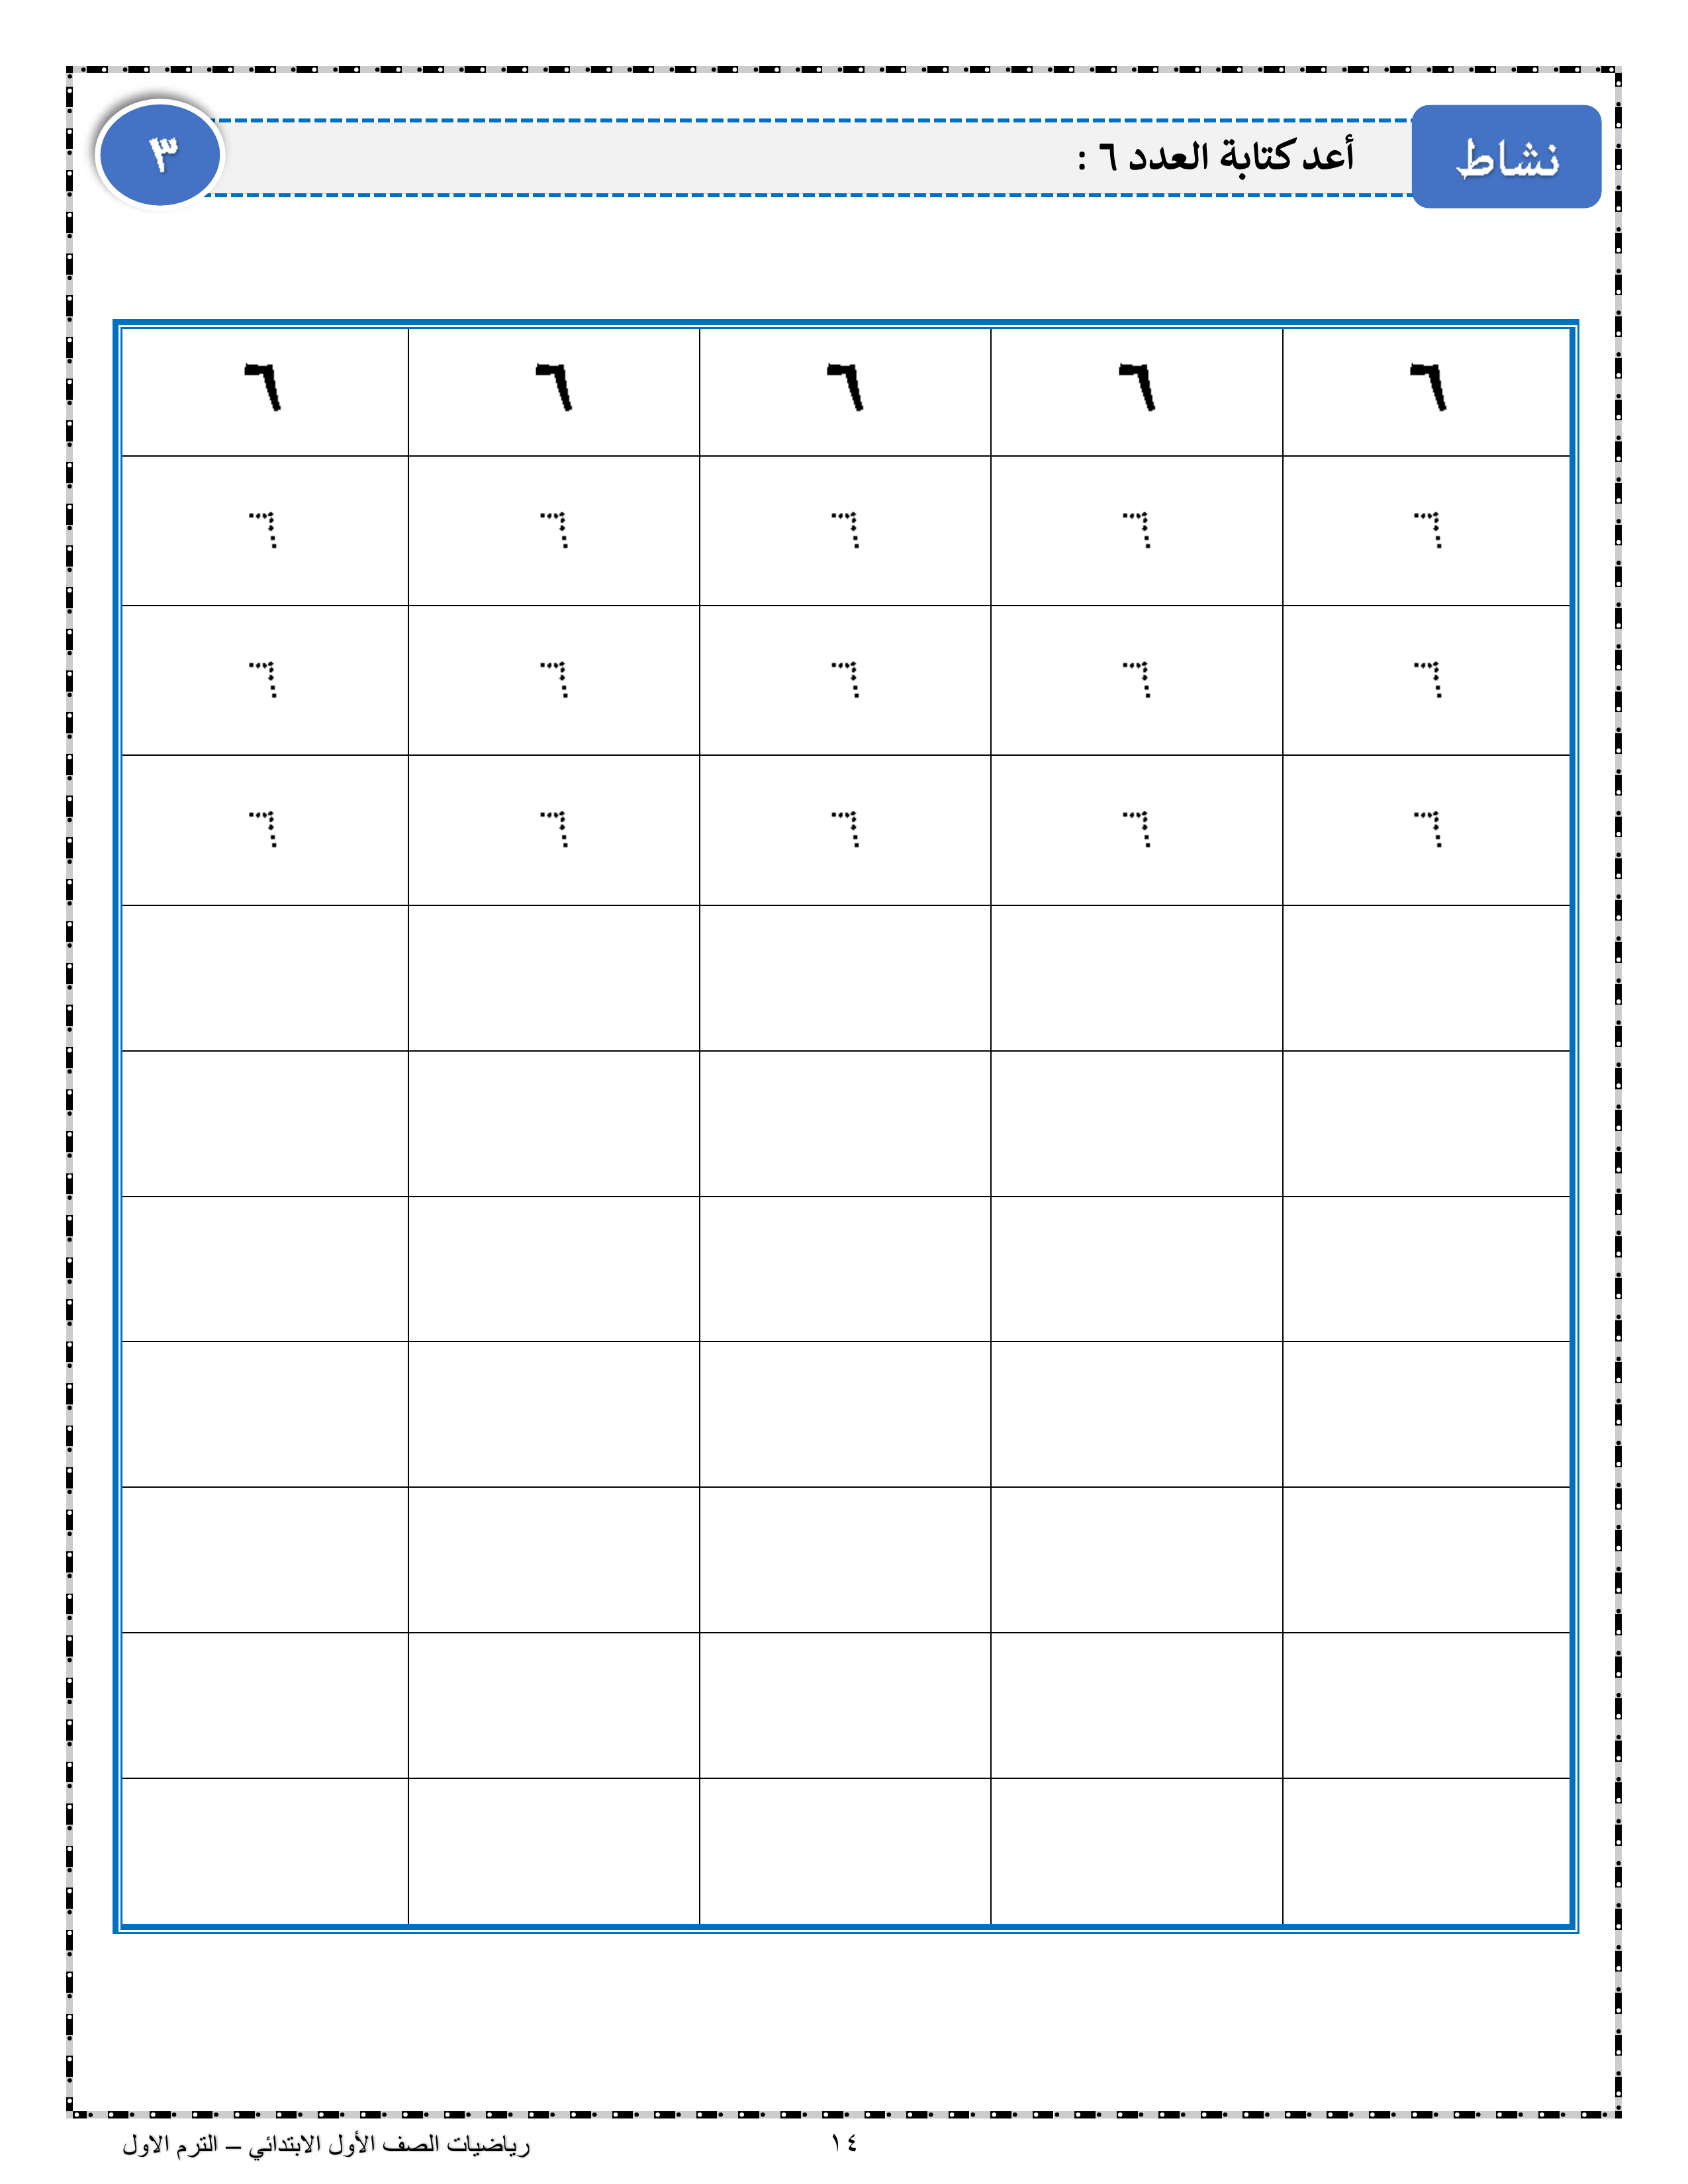 نشاط أعد كتابة العدد ٦ : ٣
٦ ٦ ٦ ٦ ٦
٦ ٦ ٦ ٦ ٦
٦ ٦ ٦ ٦ ٦
٦ ٦ ٦ ٦ ٦
١٤ رياضيات الصف الأول الابتدائي – الترم الاول